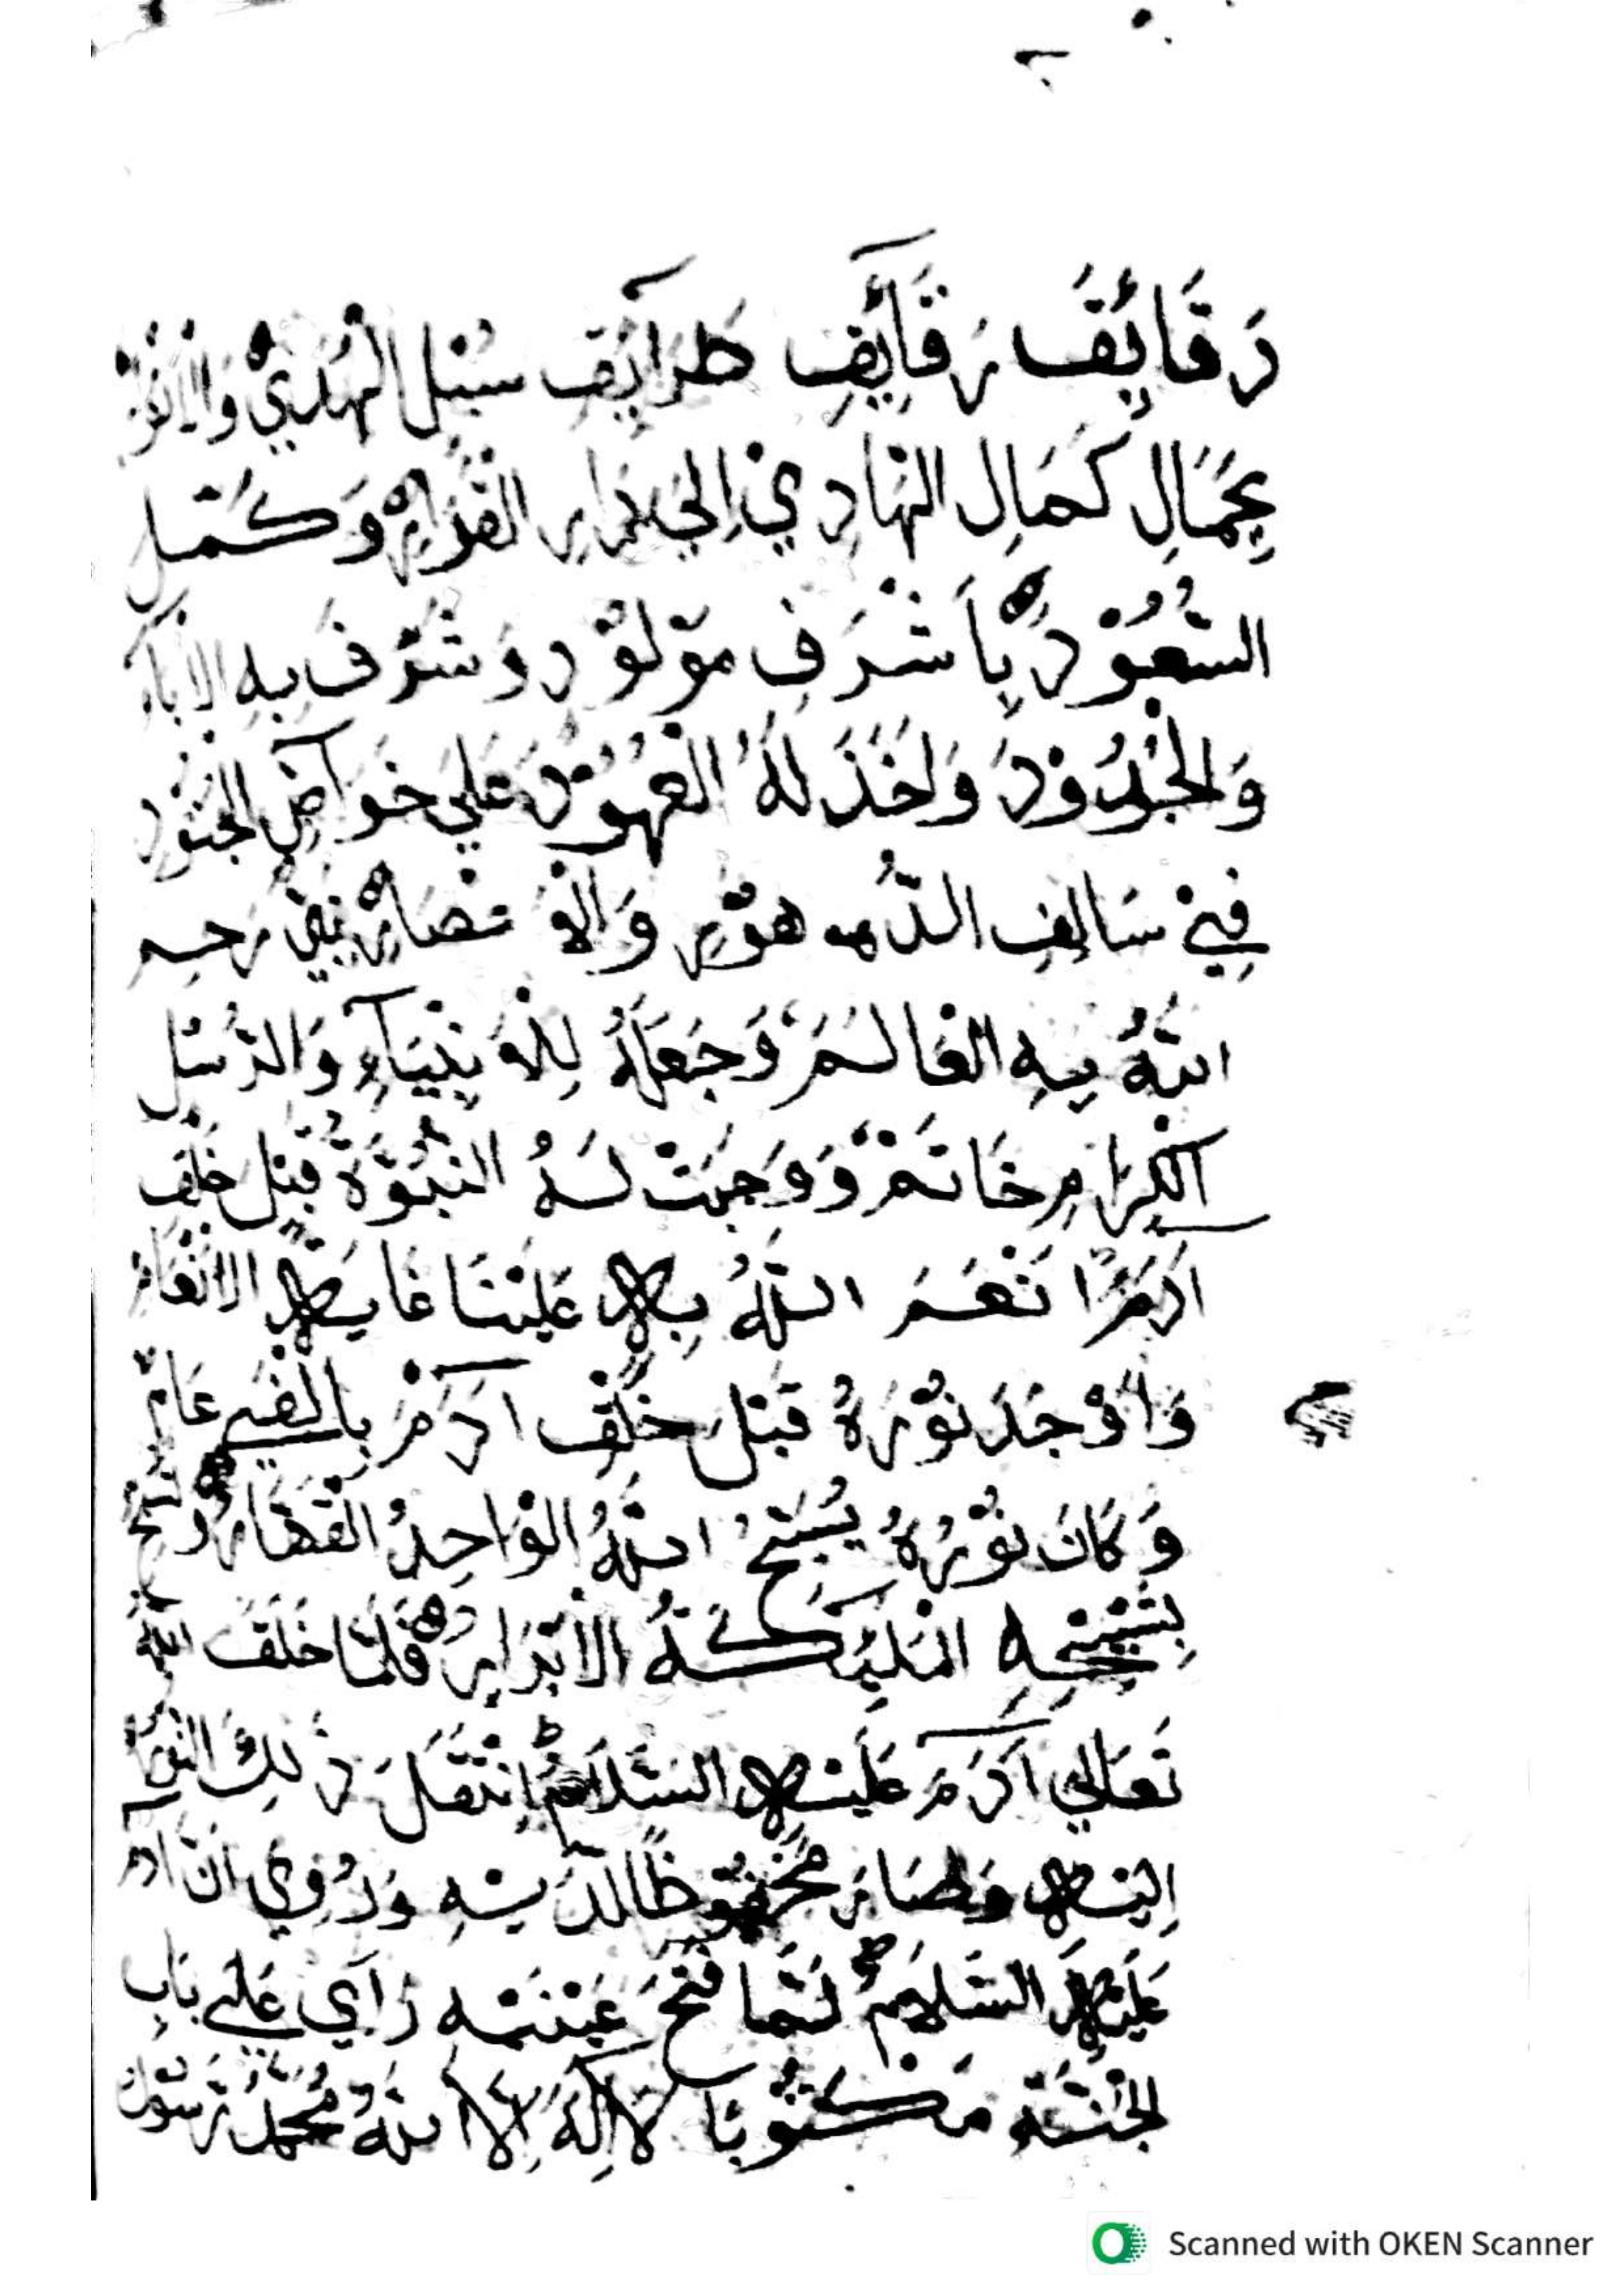 دَقَائِقَ رَقَآئِقِ طَرَآئِقِ سُبُلِ الْهُدَيْ وَالْاِقْتِرَابْ
بِجَمَالِ كَمَالِ الهَادِيْ اِلَيْ دَارِ القَرَارِ وَكَمَّلَ
السُّعُوْدَ بِاَشْرَفِ مَوْلُوْدٍ وَشَرَّفَ بِهِ الْاٰبَآءَ
وَالْجُدُوْدَ وَاَخَذَ لَهُ الْعُهُوْدَ عَلَي خَوَآصِ الْجُنُوْدِ
فِيْ سَالِفِ الدُّهُوْرِ وَالْاَعْصَارِ نَبِيٌّ رَحِمَ
اللّٰهُ بِهِ الْعَالَمَ وَجَعَلَهُ لِلْاَنْبِيَآءِ وَالرُّسُلِ
الْكِرَامِ خَاتَمَ وَوَجَبَتْ لَهُ النُّبُوَّةُ قَبْلَ خَلْقِ
اٰدَمَ اَنْعَمَ اللّٰهُ بِهِ عَلَيْنَا غَايَةَ الْاِنْعَامِ
وَاَوْجَدَ نُوْرَهُ قَبْلَ خَلْقِ اٰدَمَ بِاَلْفَيْ عَامٍ
وَكَانَ نُوْرُهُ يُسَبِّحُ اللّٰهُ الْوَاحِدُ الْقَهَّارُ وَتُسَبِّحُ
بِتَسْبِيْحِهِ الْمَلٰٓئِكَةُ الْاَبْرَارُ فَلَمَّا خَلَقَ اللّٰهُ
تَعَالَي اٰدَمَ عَلَيْهِ السَّلَامُ اِنْتَقَلَ ذٰلِكَ النُّوْرُ
اِلَيْهِ وَصَارَ مَحْفُوْظًا لَدَيْهِ وَرُوِيَ اَنَّ اٰدَمَ
عَلَيْهِ السَّلَامُ لَمَّا فَتَحَ عَيْنَيْهِ رَاٰي عَلٰي بَابِ
الْجَنَّةِ مَكْتُوْبًا لَا اِلٰهَ اِلَّا اللّٰهُ مُحَمَّدٌ رَسُوْلُ
Scanned with OKEN Scanner